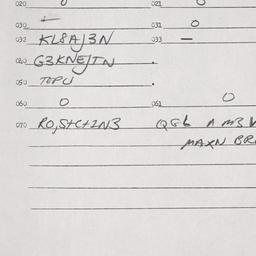 020 0 021 0
030 - 031 0
032 KL8AJ3N 033 -
040 G3KNEJTN .
050 TOPU .
060 0 061 0
070 RO,S+C+2N3 QGL A M3
MAXN BR